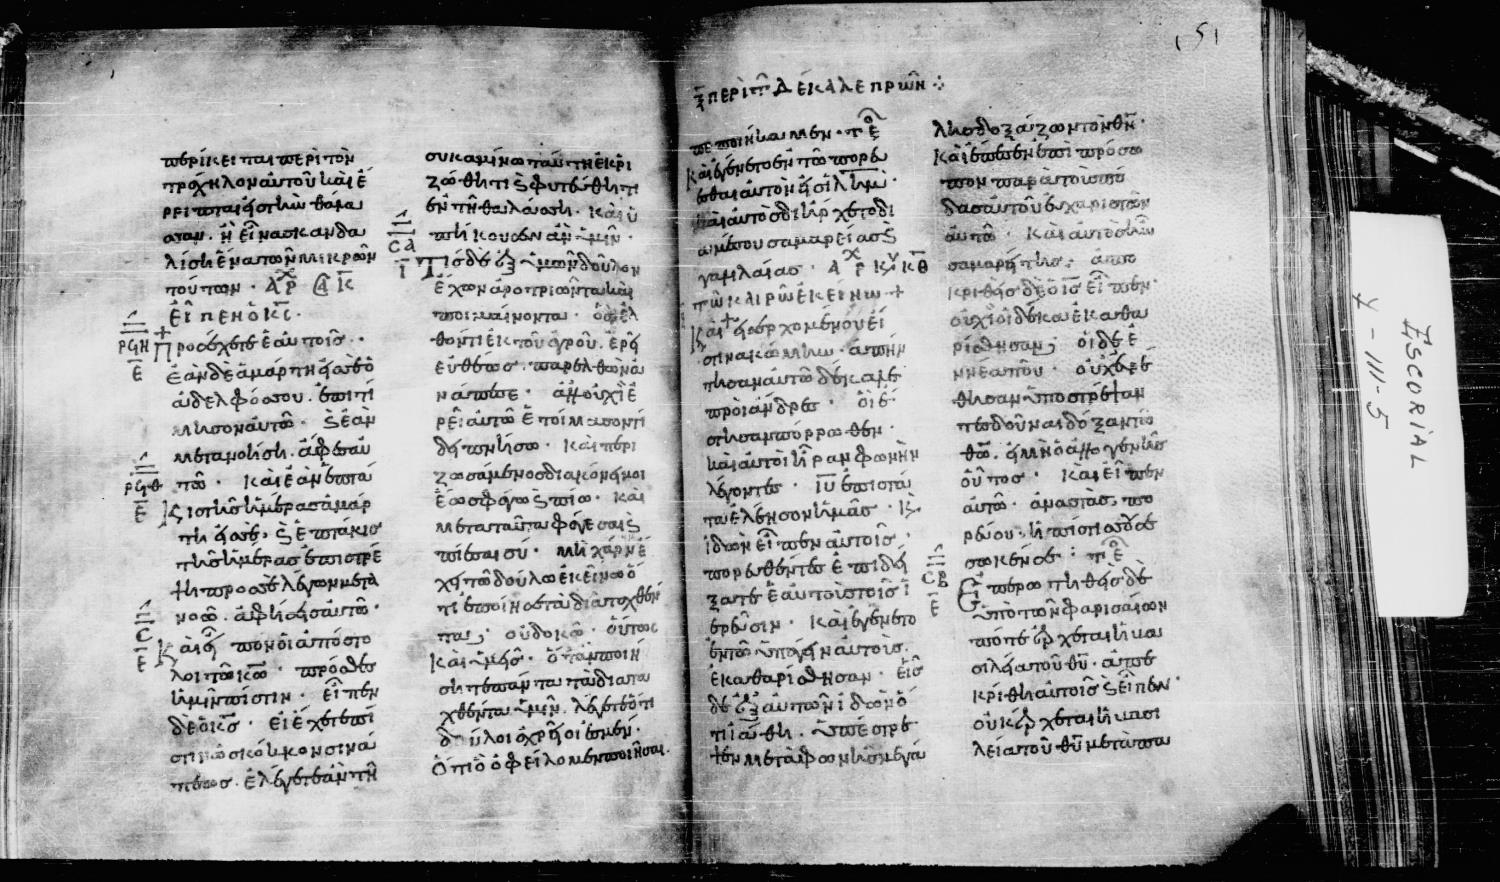 περίκειται περὶ τὸν
τράχηλον αὐτοῦ καὶ ἔ
ρριπται εἰς τὴν θάλα
σσαν. ἢ εἵνα σκανδα
λίσῃ ἕνα τῶν μικρῶν
τούτων.
εἶπεν ὁ κ̅ς̅.
Προσέχετε ἑαυτοῖς.
ἐὰν δὲ ἁμάρτῃ εἰς σὲ ὁ
ἀδελφός σου. ἐπιτί
μησον αὐτῶ. καὶ ἐὰν
μετανοήσῃ. ἄφες αὐ
τῶ. καὶ ἐὰν ἑπτά
κις τῆς ἡμέρας ἁμάρ
τῃ εἰς σὲ, καὶ ἑπτάκις
τῆς ἡμέρας ἐπιστρέ
ψῃ πρὸς σὲ λέγων μετα
νοῶ. ἀφήσεις αὐτῶ.
Καὶ εἶπον οἱ ἀπόστο
λοι τῶ κ̅ω̅. πρόσθες
ἡμῖν πίστιν. εἶπεν
δὲ ὁ κ̅ς̅. εἰ ἔχετε πί
στιν ὡς κόκκον σινά
πεως. ἐλέγετε ἂν τῆ
συκαμίνω ταύτη ἐκρι
ζώθητι καὶ φυτεύθητι
ἐν τῆ θαλάσση. καὶ ὑ
πήκουσεν ἂν ὑμῖν.
Τίς δὲ ἐξ ὑμῶν δοῦλον
ἔχων ἀροτριῶντα καὶ
ποιμαίνοντα. ὃς εἰσελ
θόντι ἐκ τοῦ ἀγροῦ. ἐρεῖ
εὐθέως. παρελθὼν ἀ
νάπεσε. ἀλλ' οὐχὶ ἐ
ρεῖ αὐτῶ ἑτοίμασον τί
δειπνήσω. καὶ περι
ζωσάμενος διακόνει μοι
ἕως φάγω καὶ πίω. καὶ
μετα ταῦτα φάγεσαι καὶ
πίεσαι σύ. μὴ χάριν ἔ
χει τῶ δούλω ἐκείνω ὅ
τι ἐποίησε τὰ διαταχθέν
τα; οὐ δοκῶ. οὕτως
καὶ ὑμεῖς. ὅταν ποιή
σητε πάντα τὰ διατα
χθέντα ὑμῖν. λέγετε ὅτι
δοῦλοι ἀχρεῖοι ἐσμέν.
ὅτι ὃ ὀφείλομεν ποιῆσαι.
ξ̅ περὶ τῶν δέκα λεπρῶν
πεποιήκαμεν.
Καὶ ἐγένετο ἐν τῶ πορεύ
εσθαι αὐτὸν εἰς ἱλ̅ημ̅.
καὶ αὐτὸς διήρχετο δι
α μέσου σαμαρείας καὶ
γαλιλαίας.
τῶ καιρῶ ἐκείνω
Καὶ εἰσερχομένου εἴ
ς τινα κώμην. ἀπήν
τησαν αὐτῶ δέκα λε
προὶ ἄνδρες. οἳ ἔ
στησαν πόρρωθεν.
καὶ αὐτοὶ ἦραν φωνὴν
λέγοντες. ι̅υ̅ ἐπιστά
τα ἐλέησον ἡμᾶς. καὶ
ἰδὼν εἶπεν αὐτοῖς.
πορευθέντες ἐπιδεί
ξατε ἑαυτοὺς τοῖς ἱ
ερεῦσιν. καὶ ἐγένετο
ἐν τῶ ὑπάγειν αὐτοὺς.
ἐκαθαρίσθησαν. εἷς
δὲ ἐξ αὐτῶν ἰδὼν ὅ
τι ἰάθη. ὑπέστρε
ψεν μετὰ φωνῆς μεγά
λης δοξάζων τὸν θ̅ν̅.
καὶ ἔπεσεν ἐπὶ πρόσω
πον παρὰ τοὺς πό
δας αὐτοῦ εὐχαριστῶν
αὐτῶ. καὶ αὐτὸς ἦν
σαμαρείτης. ἀπο
κριθεὶς δὲ ὁ ι̅ς̅ εἶπεν.
οὐχὶ οἱ δέκα ἐκαθα
ρίσθησαν; οἱ δὲ ἐ
ννέα που. οὐχ εὑρέ
θησαν ὑποστρέψαν
τες δοῦναι δόξαν τῶ
θ̅ω̅. εἰ μὴ ὁ ἀλλογενὴς
οὗτος. καὶ εἶπεν
αὐτῶ. ἀναστὰς, πο
ρεύου. ἡ πίστις σου
σέσωκέν σε.
Ἐπερωτηθεὶς δὲ
ὑπὸ τῶν φαρισαίων
πότε ἔρχεται ἡ βα
σιλεία τοῦ θ̅υ̅. ἀπε
κρίθη αὐτοῖς καὶ εἶπεν.
οὐκ ἔρχεται ἡ βασι
λεία τοῦ θ̅υ̅ μετὰ πα
151
ESCORIAL
Y-III-5